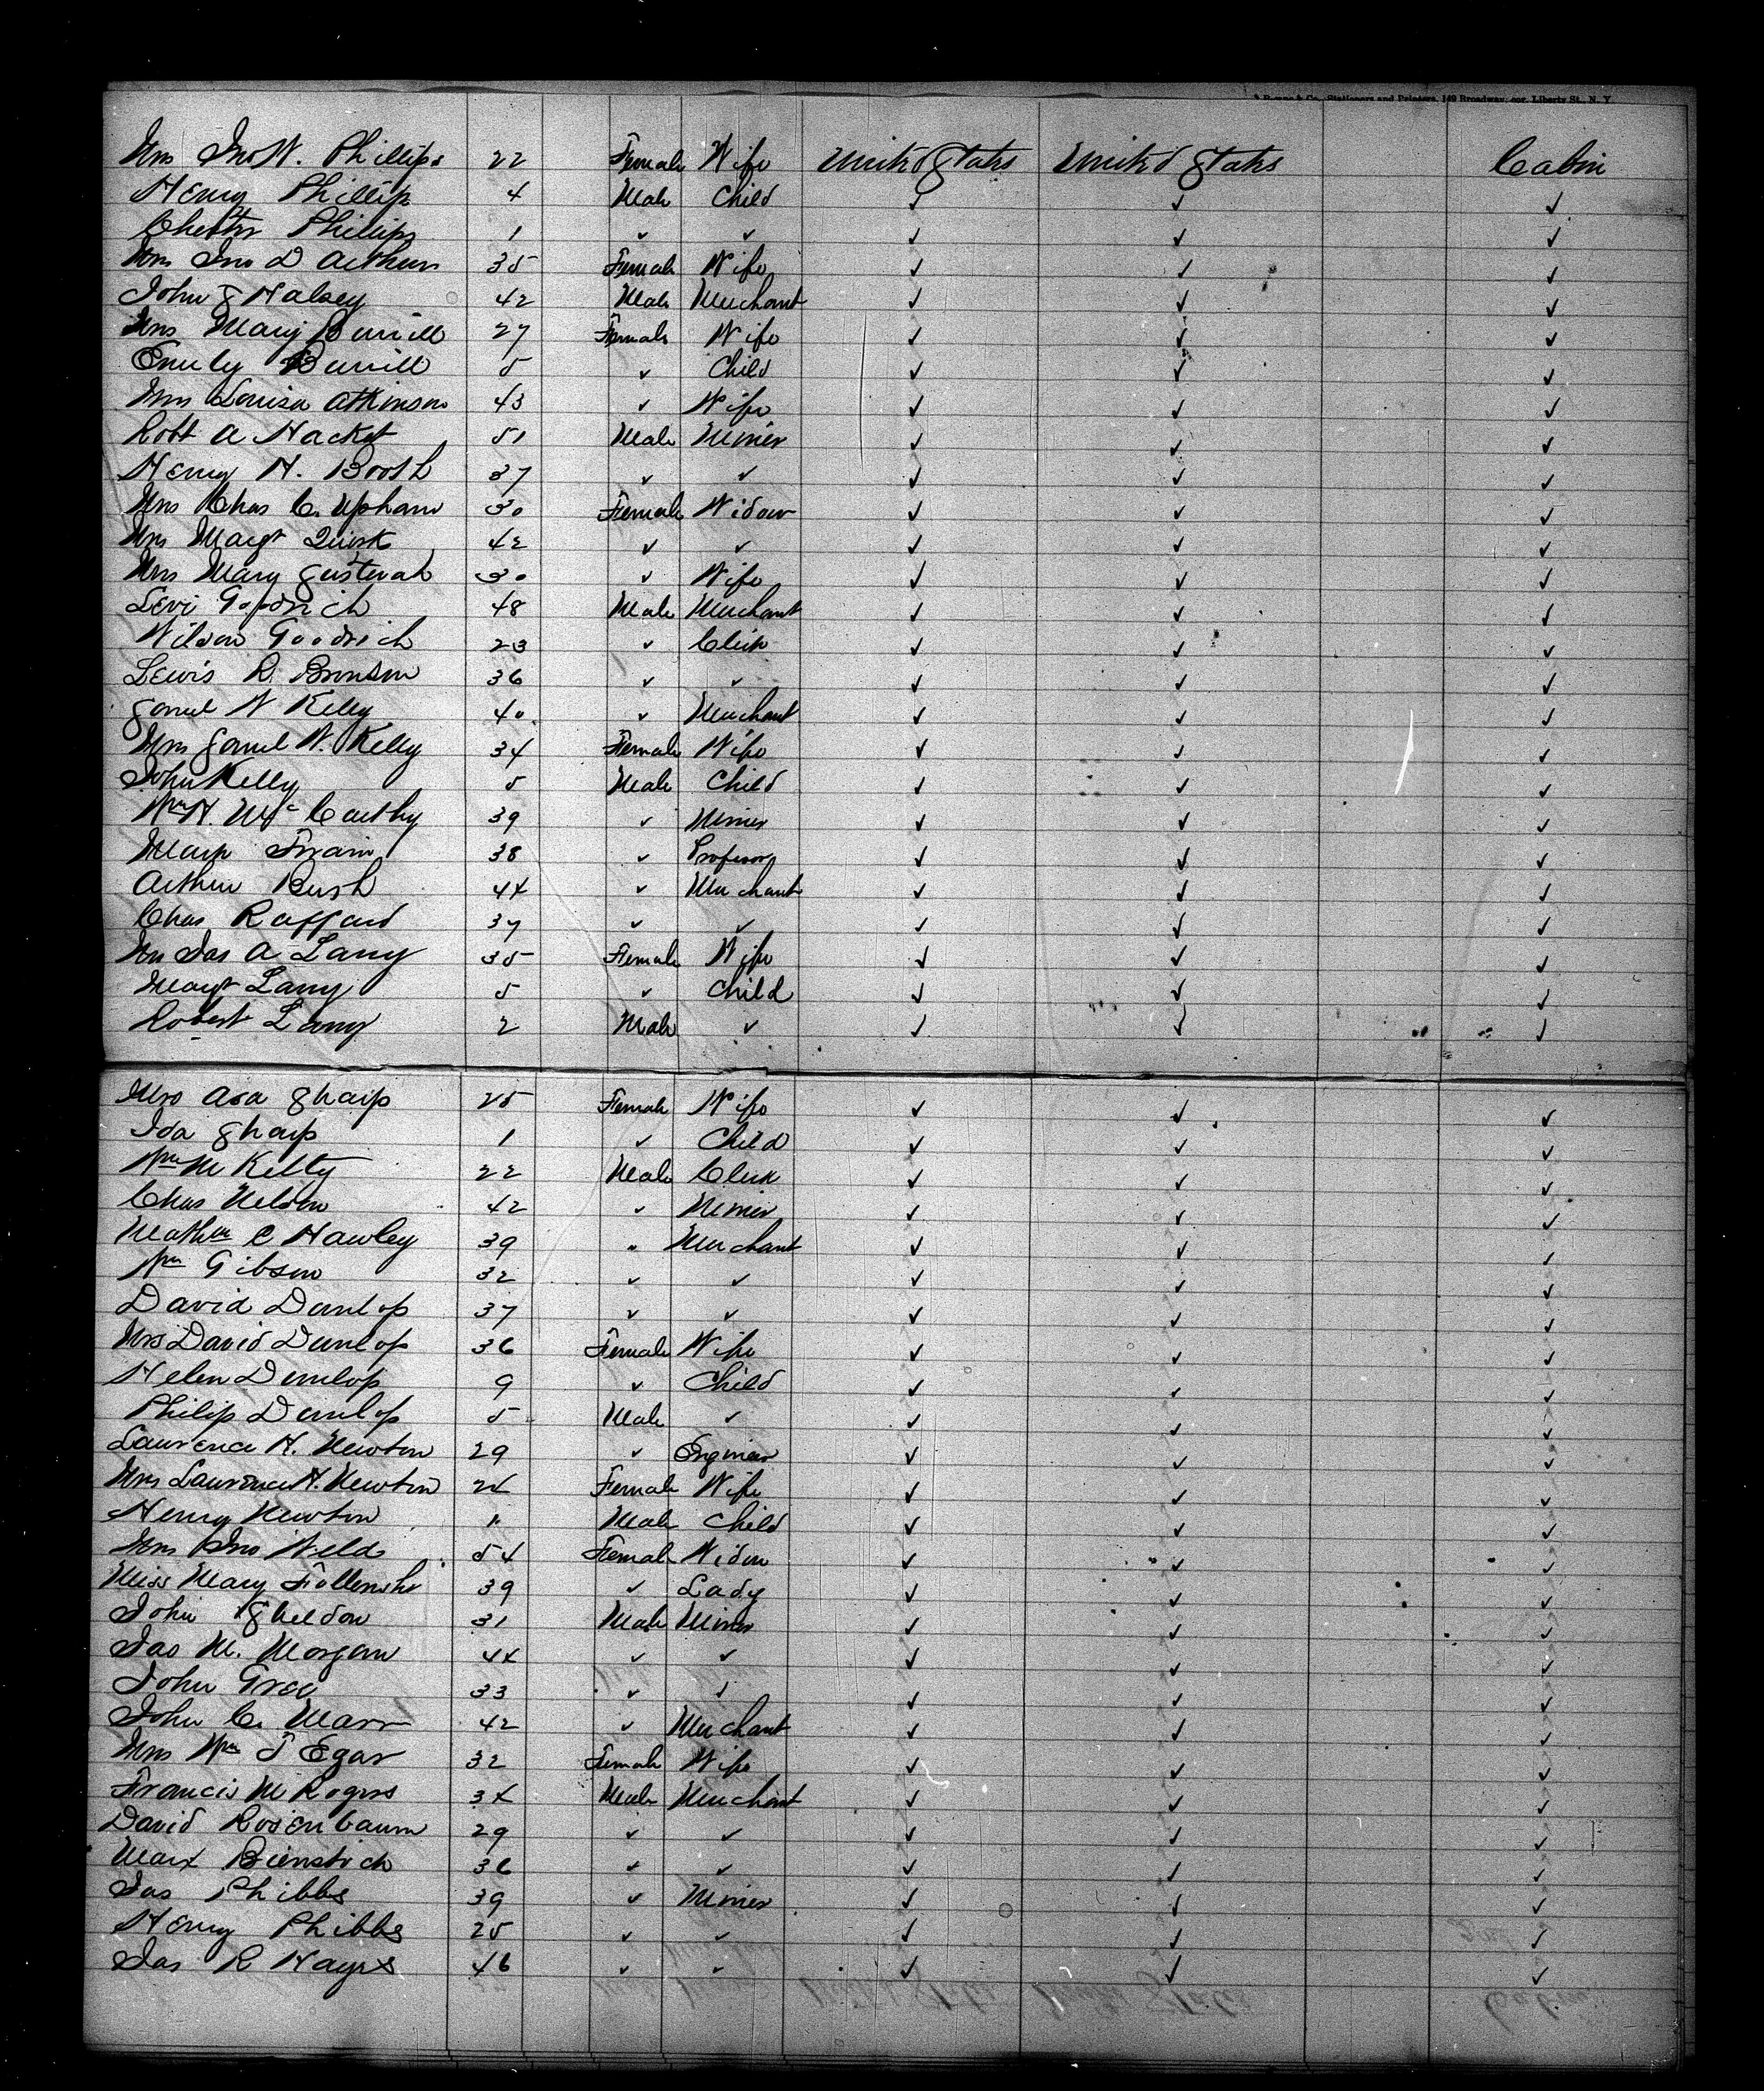 & Co., Stationers and Printers, 149 Broadway, cor. Liberty St., N. Y.
Mrs Jno W. Phillips 22 Female Wife United States United States Cabin
Henry Phillips 4 Male Child ✓ ✓ ✓
Chester Phillips 1 ✓ ✓ ✓ ✓ ✓
Mrs Jno D Arthur 35 Female Wife ✓ ✓ ✓
John S Halsey 42 Male Merchant ✓ ✓ ✓
Mrs Mary Burrill 27 Female Wife ✓ ✓ ✓
Emily Burrill 5 ✓ Child ✓ ✓ ✓
Mrs Louisa Atkinson 43 ✓ Wife ✓ ✓ ✓
Robt A Hacket 51 Male Miner ✓ ✓ ✓
Henry H. Booth 37 ✓ ✓ ✓ ✓ ✓
Mrs Chas C. Upham 30 Female Widow ✓ ✓ ✓
Mrs Margt Quirk 42 ✓ ✓ ✓ ✓ ✓
Mrs Mary 30 ✓ Wife ✓ ✓ ✓
Levi Goodrich 48 Male Merchant ✓ ✓ ✓
Wilson Goodrich 23 ✓ Clerk ✓ ✓ ✓
Lewis R. Bronson 36 ✓ ✓ ✓ ✓ ✓
Saml W Kelly 40 ✓ Merchant ✓ ✓ ✓
Mrs Saml W. Kelly 34 Female Wife ✓ ✓ ✓
John Kelly 5 Male Child ✓ ✓ ✓
Wm H. Mc Carthy 39 ✓ Miner ✓ ✓ ✓
38 ✓ Professor ✓ ✓ ✓
Arthur Rush 44 ✓ Merchant ✓ ✓ ✓
Chas Raffard 37 ✓ ✓ ✓ ✓ ✓
Mrs Jas A Lany 35 Female Wife ✓ ✓ ✓
Margt Lany 5 ✓ Child ✓ ✓ ✓
Robert Lany 2 Male ✓ ✓ ✓ ✓
Mrs Asa Sharp 25 Female Wife ✓ ✓ ✓
Ida Sharp 1 ✓ Child ✓ ✓ ✓
Wm M Kelty 22 Male Clerk ✓ ✓ ✓
Chas Nelson 42 ✓ Miner ✓ ✓ ✓
C Hawley 39 " Merchant ✓ ✓ ✓
Wm Gibson 32 ✓ ✓ ✓ ✓ ✓
David Dunlop 37 ✓ ✓ ✓ ✓ ✓
Mrs David Dunlop 36 Female Wife ✓ ✓ ✓
Helen Dunlop 9 ✓ Child ✓ ✓ ✓
Philip Dunlop 5 Male ✓ ✓ ✓ ✓
Lawrence H. Newton 29 ✓ Engineer ✓ ✓ ✓
Mrs Lawrence H. Newton 24 Female Wife ✓ ✓ ✓
Henry Newton 1 Male Child ✓ ✓ ✓
Mrs Jno Weld 54 Female Widow ✓ ✓ ✓
Miss Mary 39 ✓ Lady ✓ ✓ ✓
John Sheldon 31 Male Miner ✓ ✓ ✓
Jas M. Morgan 44 ✓ ✓ ✓ ✓ ✓
John 33 ✓ ✓ ✓ ✓ ✓
John C. Marr 42 ✓ Merchant ✓ ✓ ✓
Mrs Wm J Egar 32 Female Wife ✓ ✓ ✓
Francis M Rogers 34 Male Merchant ✓ ✓ ✓
David Rosenbaum 29 ✓ ✓ ✓ ✓ ✓
Max 36 ✓ ✓ ✓ ✓ ✓
Jas Phibbs 39 ✓ Miner ✓ ✓ ✓
Henry Phibbs 25 ✓ ✓ ✓ ✓ ✓
Jas R Hayes 46 ✓ ✓ ✓ ✓ ✓